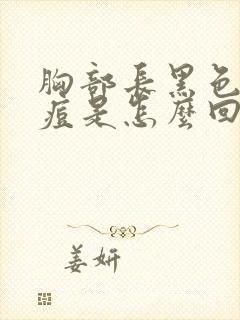 胸部長黑色
痘是怎麼回
姜妍